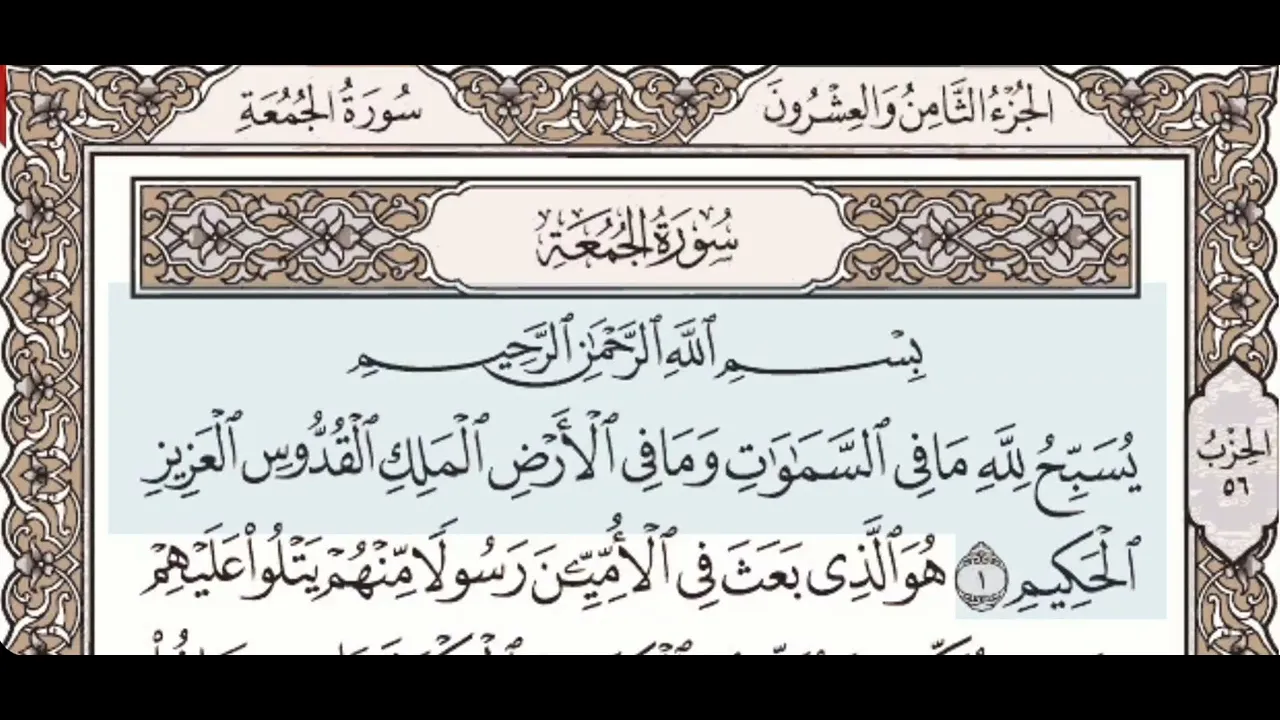 الجُزْءُ الثَّامِنُ وَالعِشْرُونَ
سُورَةُ الجُمُعَةِ
سُورَةُ الجُمُعَةِ
بِسْمِ ٱللَّهِ ٱلرَّحْمَٰنِ ٱلرَّحِيمِ
يُسَبِّحُ لِلَّهِ مَا فِى ٱلسَّمَٰوَٰتِ وَمَا فِى ٱلْأَرْضِ ٱلْمَلِكِ ٱلْقُدُّوسِ ٱلْعَزِيزِ
ٱلْحَكِيمِ ١ هُوَ ٱلَّذِى بَعَثَ فِى ٱلْأُمِّيِّـۧنَ رَسُولًا مِّنْهُمْ يَتْلُوا۟ عَلَيْهِمْ
الحِزْبُ
٥٦